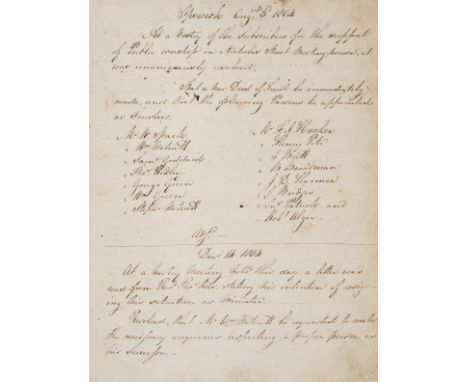 Ipswich Augst 8 1804
At a Vestry of the Subscribers for the support
of Public worship in Nicholas Street Meetinghouse, it
was unanimously resolved,
That a new Deed of Trust be immediately
made, and that the following Persons be appointed
as Trustees.
Mr W. Spark
" Wm Notcutt
" Saml Goddard
" Thos Ridley
" George Green
" Wm Green
" Stepn Notcutt
Mr E. A. Hooker
" Henry Pite
" I Brett
" Boardman
" J. D. Harmer
" J. Bridges
" Jas Patrick and
" Robt Alger.
Dec 14. 1804
At a Vestry Meeting held this day, a letter was
read from Revd stating his intention of resign-
ing his situation as Minister
Resolved, that Mr Wm Notcutt be requested to make
the necessary enquiries respecting a proper person as
his successor —